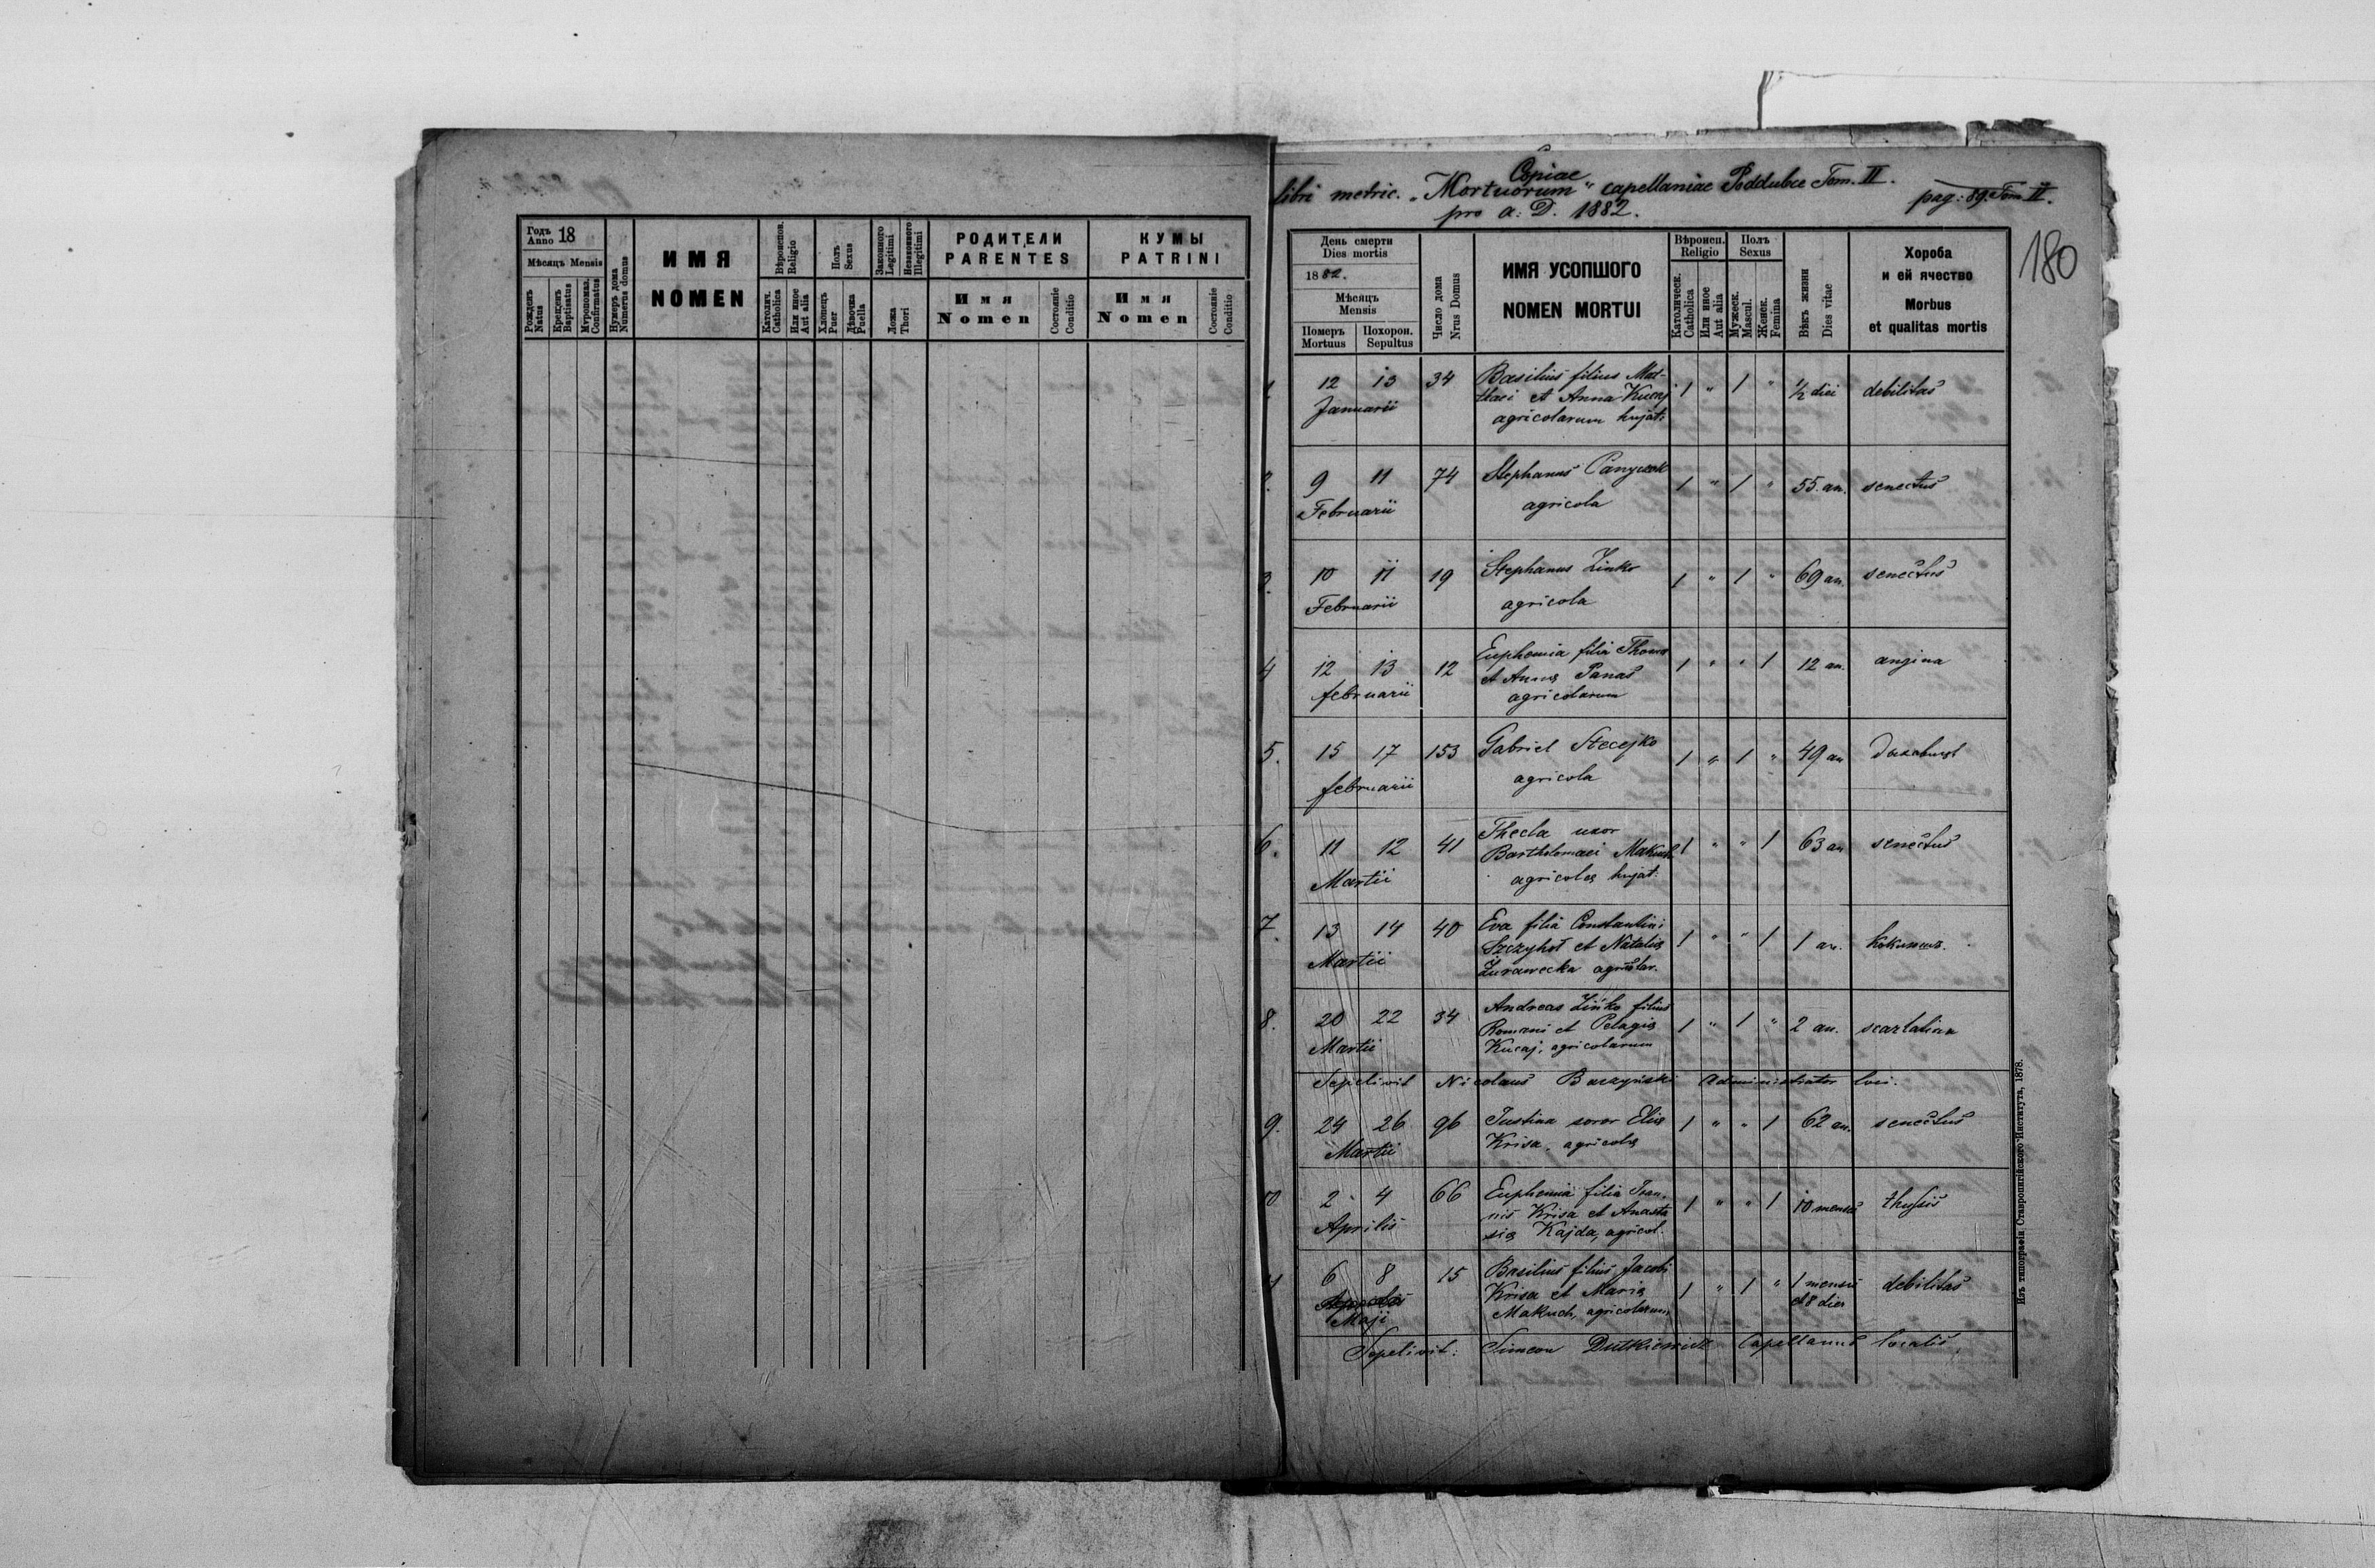 Годъ
Anno 18
Мѣсяцъ Mensis
Рожденъ
Natus
Крещенъ
Baptisatus
Муропомаз.
Confirmatus
Нумеръ дома
Numerus domus
ИМЯ
NOMEN
Вѣроиспов.
Religio
Католич.
Catholica
Или иное
Aut alia
Полъ
Sexus
Хлопецъ
Puer
Дѣвочка
Puella
Законного
Legitimi
Незаконного
Illegitimi
Ложа
Thori
РОДИТЕЛИ
PARENTES
Имя
Nomen
Состояніе
Conditio
КУМЫ
PATRINI
Имя
Nomen
Состояніе
Conditio
Copiae
libri metric. „Mortuorum" capellaniae Poddubce Tom. II.
pro a: D. 1882.
pag: 89. Tom II.
180
День смерти
Dies mortis
1882.
Мѣсяцъ
Mensis
Померъ
Mortuus
Похорон.
Sepultus
Число дома
Nrus Domus
ИМЯ УСОПШОГО
NOMEN MORTUI
Вѣроисп.
Religio
Католическ.
Catholica
Или иное
Aut alia
Полъ
Sexus
Мужеск.
Mascul.
Женск.
Femina
Вѣкъ жизни
Dies vitae
Хороба
и ей ячество
Morbus
et qualitas mortis
1 12 13 34 Basilius filius Mat-
thaei et Anna Kucaj 1 " 1 " 1/2 diei debilitas
Januarii agricolarum hujat:
2. 9 11 74 Stephanus 1 " 1 " 55. an. senectus
Februarii agricola
3. 10 11 19 Stephanus Zinko 1 " 1 " 69 an. senectus
Februarii agricola
4 12 13 12 Euphemia filia Thomae
et Annae Panas 1 " " 1 12 an. angina
februarii agricolarum
5. 15 17 153 Gabriel Stecejko 1 " 1 " 49 an
februarii agricola
6. 11 12 41 Thecla uxor
Bartholomaei Makuch 1 " " 1 63 an senectus
Martii agricolae hujat.
7. 13 14 40 Eva filia Constantini
et Nataliae 1 " " 1 1 an.
Martii Żurawecka agricolar.
8. 20 22 34 Andreas Zinko filius
Romani et Pelagiae 1 " 1 " 2 an. scarlatina
Martii Kucaj, agricolarum
Sepelivit Nicolaus Baczyński Administrator loci.
9. 24 26 96 Justina soror Eliae 1 " " 1 62 an. senectus
Martii Krisa, agricolae
10 2 4 66 Euphemia filia Joan-
nis Krisa et Anasta 1 " " 1 10 mensis thysis
Aprilis siae Kajda, agricol.
11 6 8 15 Basilius filius Jacobi
Krisa et Mariae 1 " 1 " 1 mensis debilitas
et 8 dier
Maji Makuch, agricolarum
Sepelivit: Simeon Dutkiewicz Capellanus localis.
Изъ типографіи Ставропигійского Института, 1878.